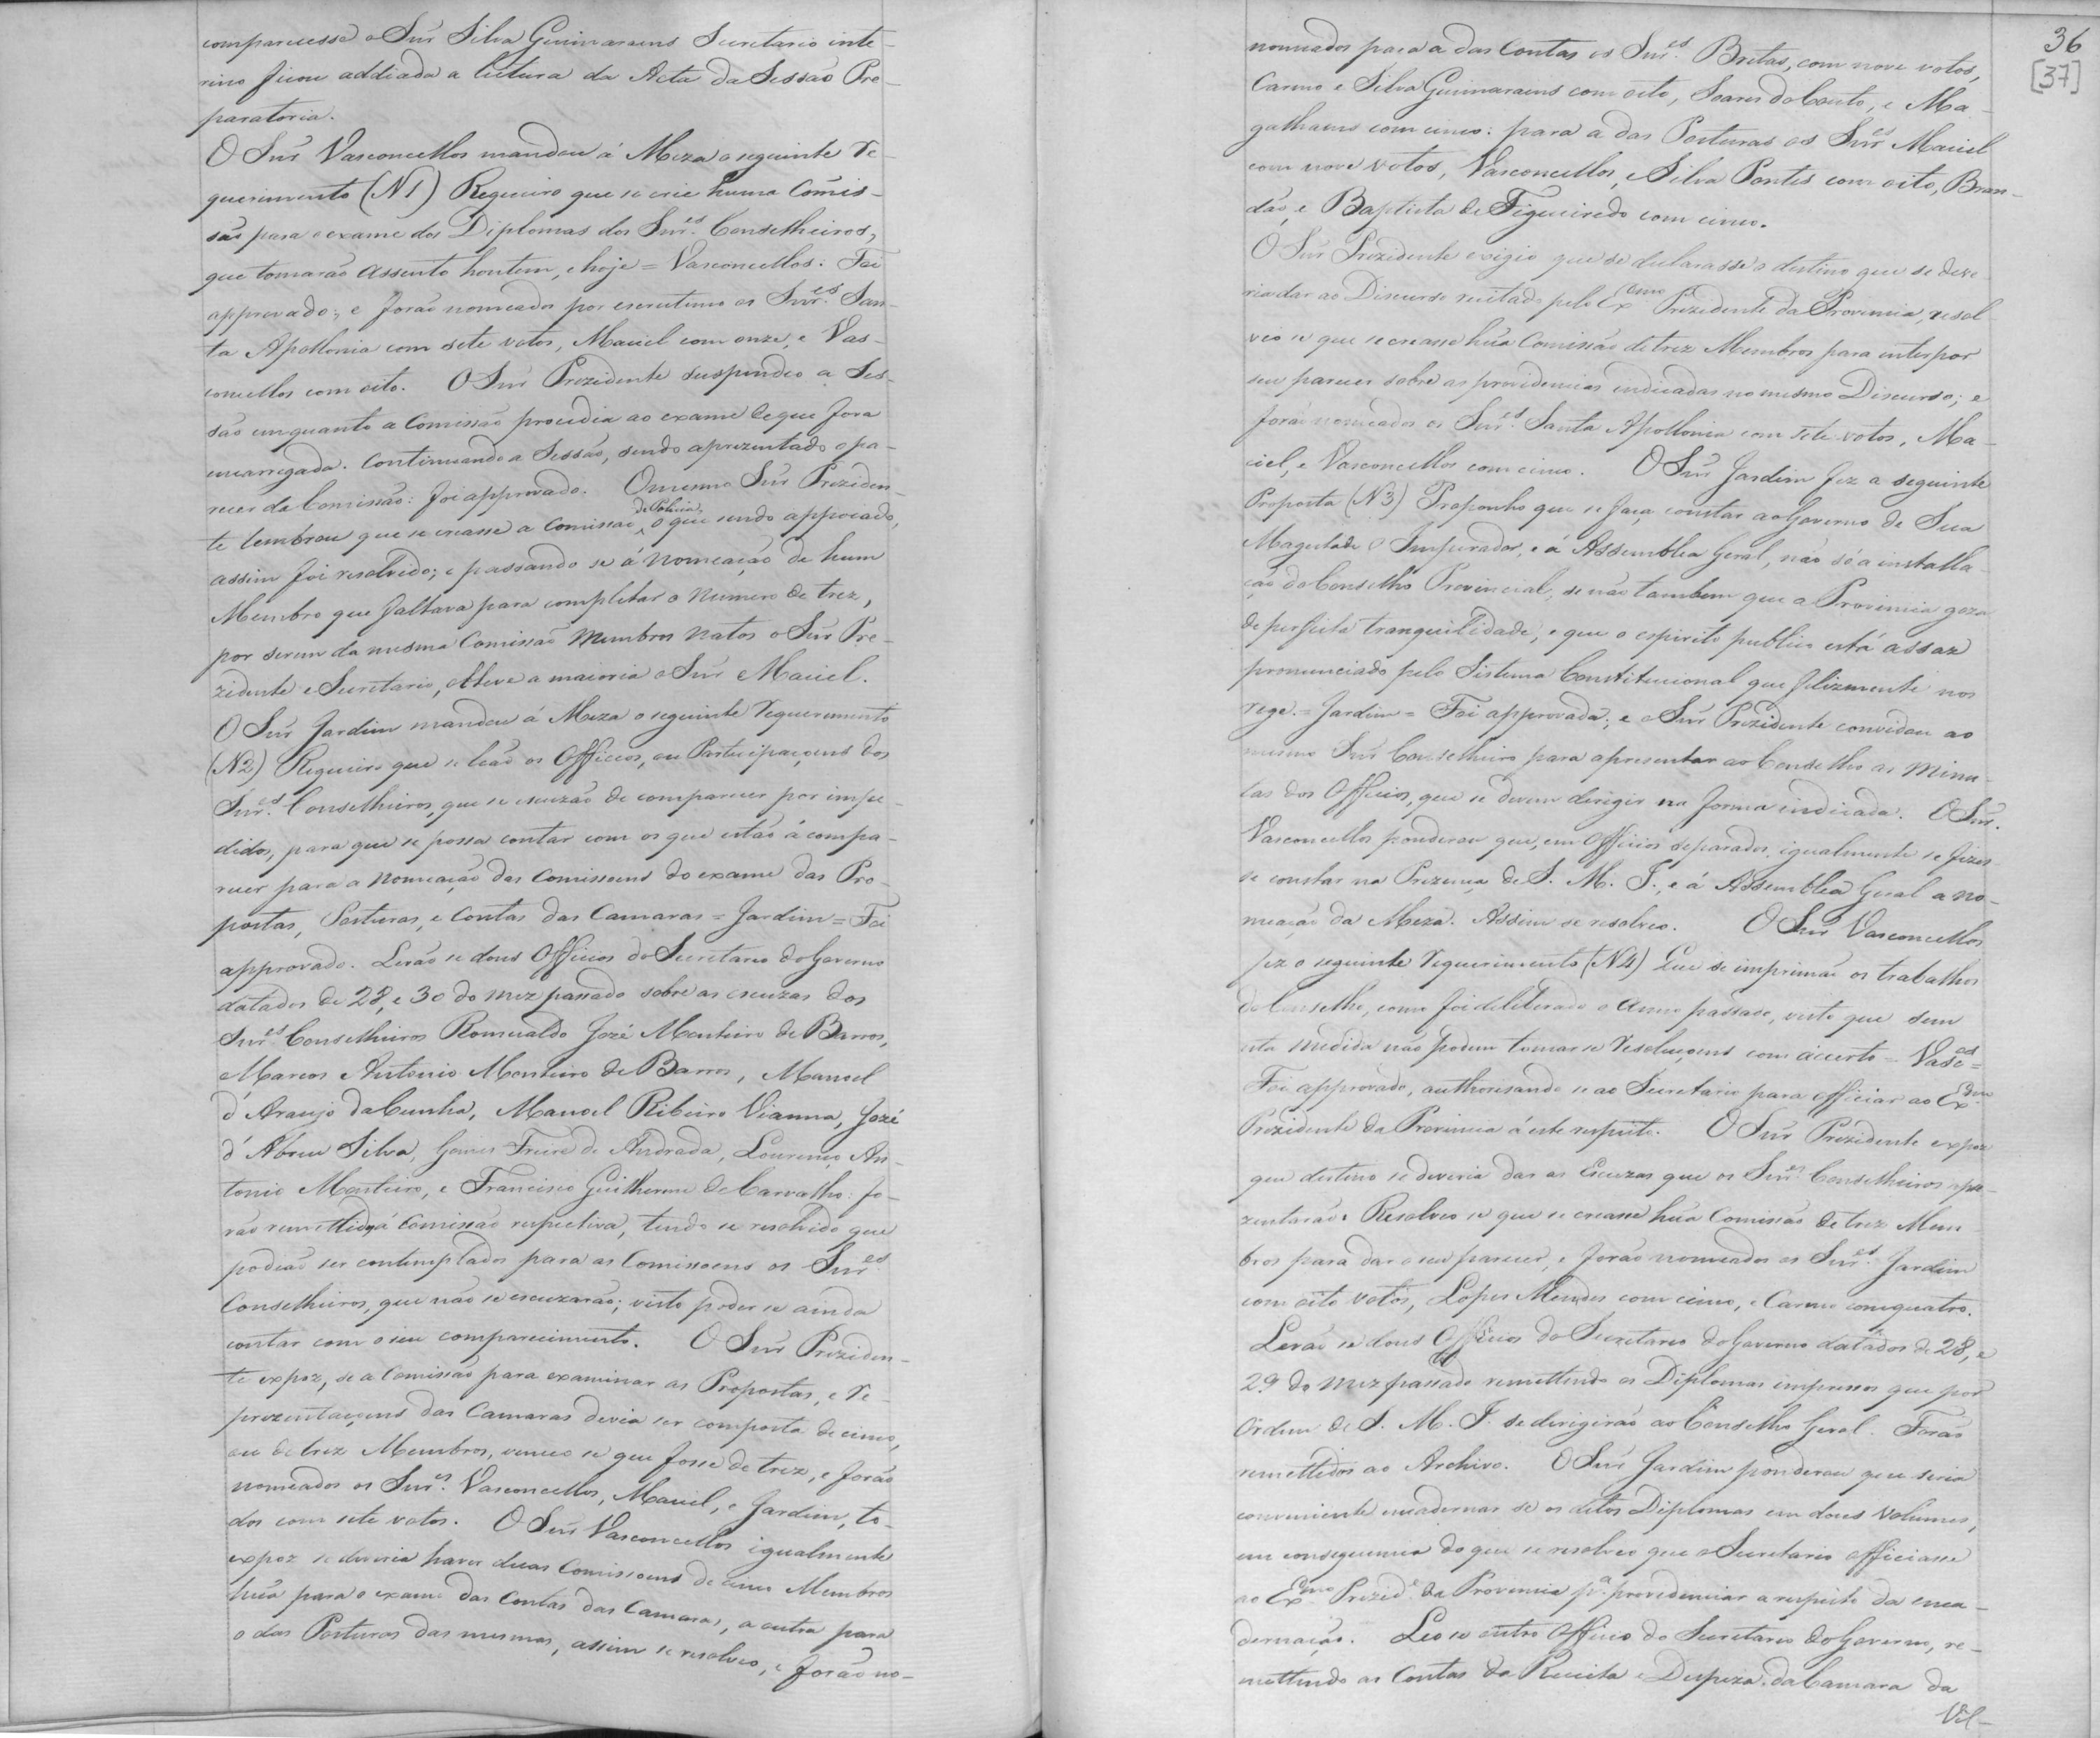 comparecesse o Snr̃ Silva Guimaraens Secretario inte-
rino ficou addiada a leitura da Acta da Sessão Pre-
paratoria.
O Snr̃ Vasconcellos mandou á Meza o seguinte re-
querimento (N1) Requeiro que se crie huma Comis-
são para o exame dos Diplomas dos Snr.es Conselheiros,
que tomarão assento hontem, e hoje = Vasconcellos. Foi
approvado; e forão nomeados por escrutinio os Snr.es San-
ta Apollonia com sete votos, Maciel com onze, e Vas-
concellos com oito. O Snr̃ Prezidente suspendeo a Ses-
são emquanto a Comissão procedia ao exame de que fora
encarregada. Continuando a Sessão, sendo aprezentado o pa-
recer da Comissão: foi approvado. O mesmo Snr̃ Preziden-
te lembrou que se creasse a Comissão de Policia, o que sendo appoiado,
assim foi resolvido; e passando se á nomeação de hum
Membro que faltava para completar o numero de trez,
por serem da mesma Comissão Membros natos o Snr̃ Pre-
zidente e Secretario, obteve a maioria o Snr̃ Maciel.
O Snr̃ Jardim mandou á Meza o seguinte requerimento
(N2) Requeiro que se leão os Officios, ou Participaçoens dos
Snr.es Conselheiros, que se escuzão de comparecer por impe-
didos, para que se possa contar com os que estão á compa-
recer para a nomeação das Comissoens do exame das Pro-
postas, Posturas, e Contas das Camaras = Jardim = Foi
approvado. Lerão se dous Officios do Secretario do Governo
datados de 28, e 30 do mez passado sobre as escuzas dos
Snr.es Conselheiros Romualdo Jozé Monteiro de Barros,
Marcos Antonio Monteiro de Barros, Manoel
d'Araujo da Cunha, Manoel Ribeiro Vianna, Jozé
d'Abreu Silva, Gomes Freire de Andrada, Lourenço An-
tonio Monteiro, e Francisco Guilherme de Carvalho: fo-
rão remettidos á Comissão respectiva, tendo se resolvido que
podião ser contemplados para as Comissoens os Snr.es
Conselheiros, que não se escuzarão; visto poder se ainda
contar com o seu comparecimento. O Snr̃ Preziden-
te expoz, se a Comissão para examinar as Propostas, e Re-
prezentaçoens das Camaras devia ser composta de cinco,
ou de trez Membros, venceo se que fosse de trez, e forão
nomeados os Snr.es Vasconcellos, Maciel, e Jardim, to-
dos com sete votos. O Snr̃ Vasconcellos igualmente
expoz se deveria haver duas Comissoens de cinco Membros
hũa para o exame das Contas das Camaras, a outra para
o das Posturas das mesmas, assim se resolveo, e forão no-
36
[37]
nomeados para a das Contas os Snr.es Bretas, com nove votos,
Carmo e Silva Guimaraens com oito, Soares do Couto, e Ma-
galhaens com cinco: para a das Posturas os Snr.es Maciel
com nove votos, Vasconcellos, e Silva Pontes com oito, Bran-
dão, e Baptista de Figueiredo com cinco.
O Snr̃ Prezidente exigio que se declarasse o destino que se deve-
ria dar ao Discurso recitado pelo Ex.mo Prezidente da Provincia, resol-
veo se que se creasse hũa Comissão de trez Membros para interpor
seu parecer sobre as providencias indicadas no mesmo Discurso; e
forão nomeados os Snr.es Santa Apollonia com sete votos, Ma-
ciel, e Vasconcellos com cinco. O Snr̃ Jardim fez a seguinte
Proposta (N3) Proponho que se faça constar ao Governo de Sua
Magestade o Imperador, e á Assemblea Geral, não só a installa-
ção do Conselho Provincial, se não tambem que a Provincia goza
de perfeita tranquilidade, e que o espirito publico está assaz
pronunciado pelo Sistema Constitucional que felizmente nos
rege. = Jardim = Foi approvada; e o Snr̃ Prezidente convidou ao
mesmo Snr̃ Conselheiro para apresentar ao Conselho as Minu-
tas dos Officios, que se devem dirigir na forma indicada. O Snr̃
Vasconcellos ponderou que, em Officios separados igualmente se fizes-
se constar na Prezença de S. M. I., e á Assemblea Geral a no-
meação da Meza. Assim se resolveo. O Snr̃ Vasconcellos
fez o seguinte requerimento (N4) Que se imprimão os trabalhos
do Conselho, como foi deliberado o Anno passado, visto que sem
esta medida não podem tomar se resoluçoens com accerto = Vasc.os =
Foi approvado, authorisando se ao Secretario para officiar ao Ex.mo
Prezidente da Provincia á este respeito. O Snr̃ Prezidente expoz
que destino se deveria dar as Escuzas que os Snr.es Conselheiros apre-
zentarão. Resolveo se que se creasse hũa Comissão de trez Mem-
bros para dar o seu parecer, e forão nomeados os Snr.es Jardim
com oito votos, Lopes Mendes com cinco, e Carmo com quatro.
Lerão se dous Officios do Secretario do Governo datados de 28, e
29 do mez passado remettendo os Diplomas impressos que por
Ordem de S. M. I. se dirigirão ao Conselho Geral. Forão
remettidos ao Archivo. O Snr̃ Jardim ponderou que seria
conveniente encadernar se os ditos Diplomas em dous volumes,
em consequencia do que se resolveo que o Secretario officiasse
ao Ex.mo Prezid.e da Provincia p.a providenciar a respeito da enca-
dernação. Leo se outro Officio do Secretario do Governo, re-
mettendo as Contas da Receita e Despeza da Camara da
Vil-